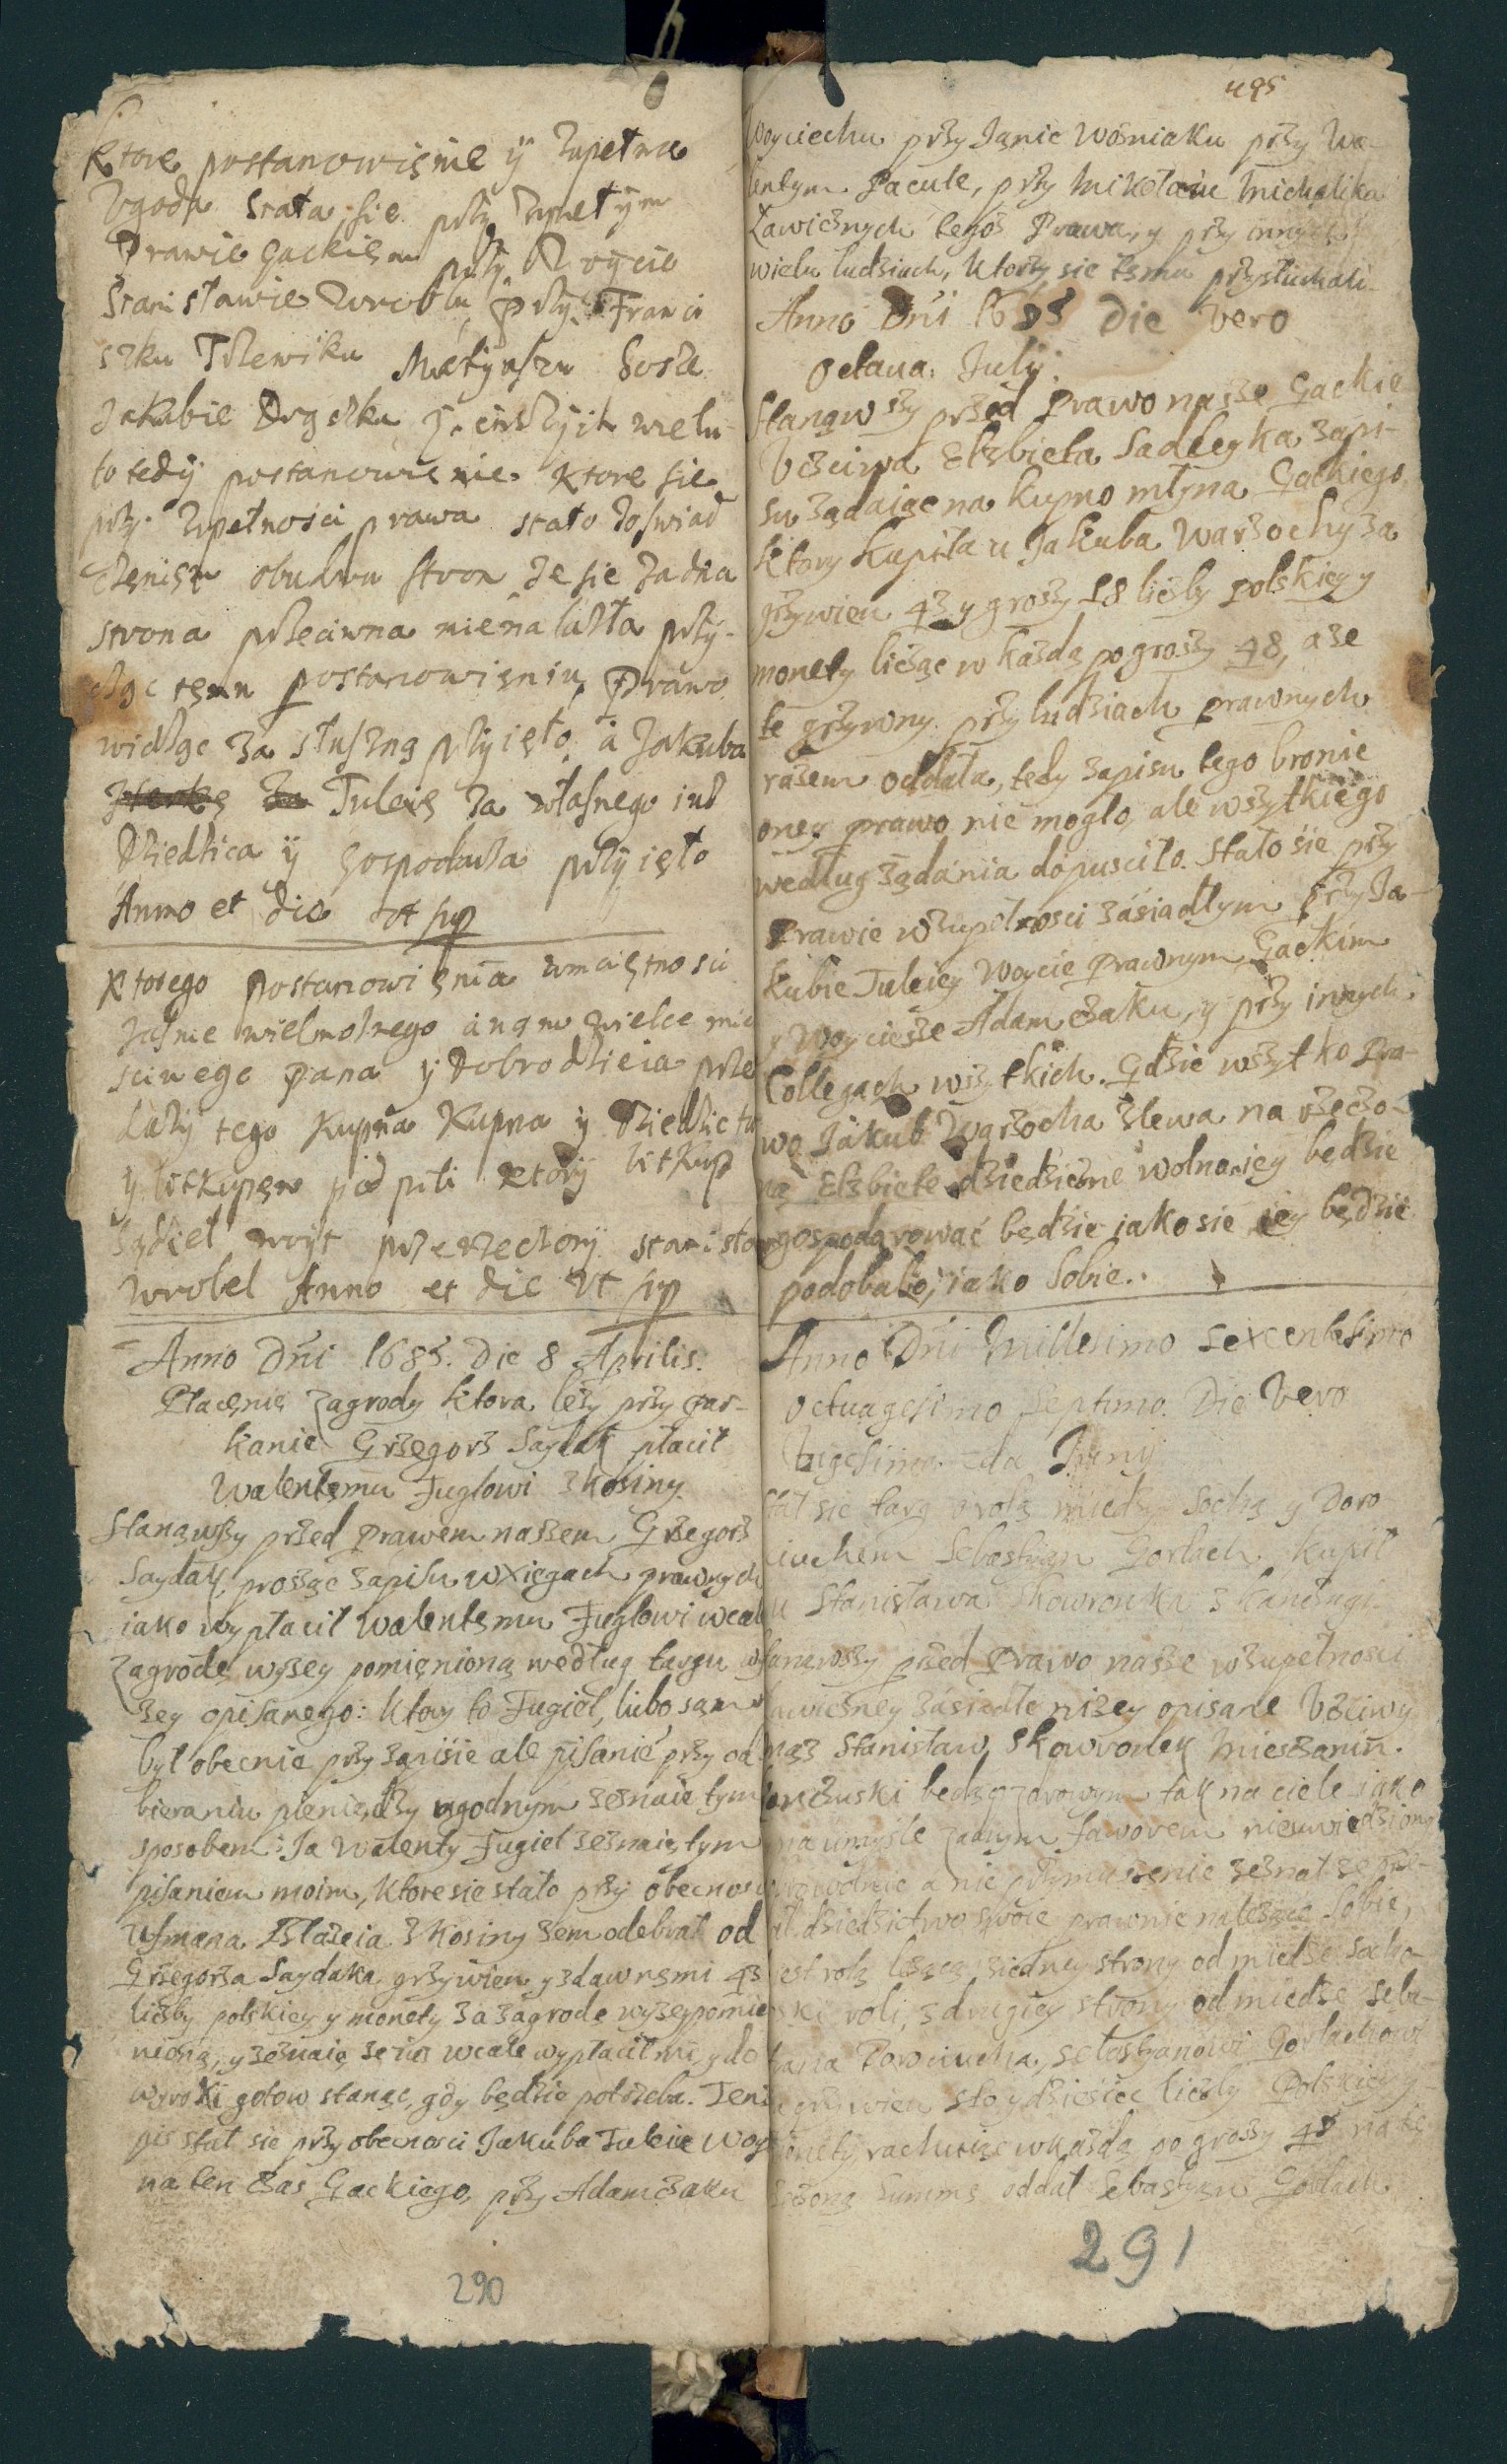 Ktore postanowięnie ÿ zupełna
Vgoda stała sie przÿ zupełÿm
Prawie Gackięm przÿ Woÿcie
Stanisławie Wroblu przÿ Franci
szku Trzewiku Matÿaszu
Jakubie Drązku ÿ inszÿch wielu
to tedÿ postanowienie ktore sie
przÿ zupełnosci prawa stało zoswiad
czenięm obudwu stron ze sie zadna
strona przeciwna nienalazła przÿ
temu postanowięniu, Prawo
widząc za słuszną przÿięło, a Jakuba
Tuleię za własnego iuz
Dziedzica ÿ gospodarza przÿięło
Anno et die vt sup
Ktorego postanowięnia wmaiętnosci
Jasnie wielmoznego a nam wielce mić
sciwego Pana ÿ Dobrodzieia prze
dazÿ tego Kupna Kupna ÿ Dziedzictw
ÿ litkupęm pod pili ktorÿ litkup
Sądzieł woÿt przerzeczonÿ stanisław
wrobel Anno et die vt sup
Anno Dńi 1685. Die 8 Aprilis.
Płacęnię zagrody ktora lezy przy par-
kanie Grzegorz Saydak płacił
Walentęmu Fuglowi z Kosiny.
Stanąwszy przed Prawem naszem Grzegorz
Saydak, prosząc zapisu wxięgach prawnych
iako wypłacił Walentęmu Fuglowi wcale
zagrodę wyzey pomięnioną według targu wy
zey opisanego: Ktory to Fugieł, lubo sam
był obecnie przy zapisie ale pisanie przy od
bieraniu pieniędzy ugodnym zeznaie tym
sposobem: Ja Walenty Fugieł zeznaię tym
pisaniem moim, ktore sie stało przy obecnosci
z Kosiny zem odebrał od
Grzegorza Saydaka grzywien y zdawnemi 43
liczby polskiey y monety za zagrode wyzey pomie
nioną, y zeznaię ze iuz wcale wypłacił mi, y do
wyroki gotow stanąc, gdy będzie potrzeba. Ten
pis stał sie przy obecnosci Jakuba Tuleie Woy
na ten czas Gackiego, przy Adamczaku
290
495
Woyciechu przy Janie Wozniaku przy Wa
lentym Pacule, przy Mikołaiu Michaliku
Ławicznych tegoz Prawa, y przy innych
wielu ludziach, ktorzy sie tęmu przysłuchali.
Anno Dńi 1685 die vero
Octaua July.
Stanąwszy przed Prawo nasze Gackie
Vczciwa Elzbieta Sadleyka zapi-
su ządaiąc na kupno młyna Gackiego,
ktory kupiła u Jakuba Warzochy za
grzywien 43 y groszy 18 liczby polskiey y
monety licząc w kazdą po groszy 48, a ze
te grzywny przy ludziach prawnych
razem oddała, tedy zapisu tego bronic
oney prawo nie mogło, ale wszytkiego
według ządania dopuscilo. Stało sie przy
Prawie wzupełnosci zasiadłym przy Ja-
kubie Tuleiey Woycie Prawnym Gackim
y Woyciesze Adamczaku, y przy innych
Collegach wszytkich. Gdzie wszytko Pra-
wo Jakub Warzocha zlewa na rzeczo-
ną Elzbiete dziedziczne wolno iey będzie
gospodarować będzie iako sie iey będzie
podobało, iako sobie.
Anno Dńi Millesimo sexcentesimo
octuagesimo septimo. Die Vero
Junij
stał sie targ o rolą miedzy Sochą y Doro
ciuchem Sebastyan Gorlach kupił
u Stanisława Skowronka z Kanczugi
Stanąwszy przed Prawo nasze wzupełnosci
ławiczney zasiadłe nizey opisane Vcciwy
mąz Stanisław Skowronek Mieszanin
kanczuski bedąc zdrowym tak na ciele iako
na umysle zadnym faworem nieuwiedziony
dobrowolnie a nie przymuszenie zeznał ze prze
dał dziedzictwo swoie prawnie nalezące sobie,
iest rolą lezącą ziedney strony od miedze Socho
ski roli, z drugiey strony od miedze Seba-
styana Dorociucha, Sebastyanowi Gorlachowi
za grzywien sto y dziesiec liczby Polskiey y
monety, rachuiąc wkazdą po groszy 48 na tę
rzeczoną summę oddał Sebastyan Gorlach
291